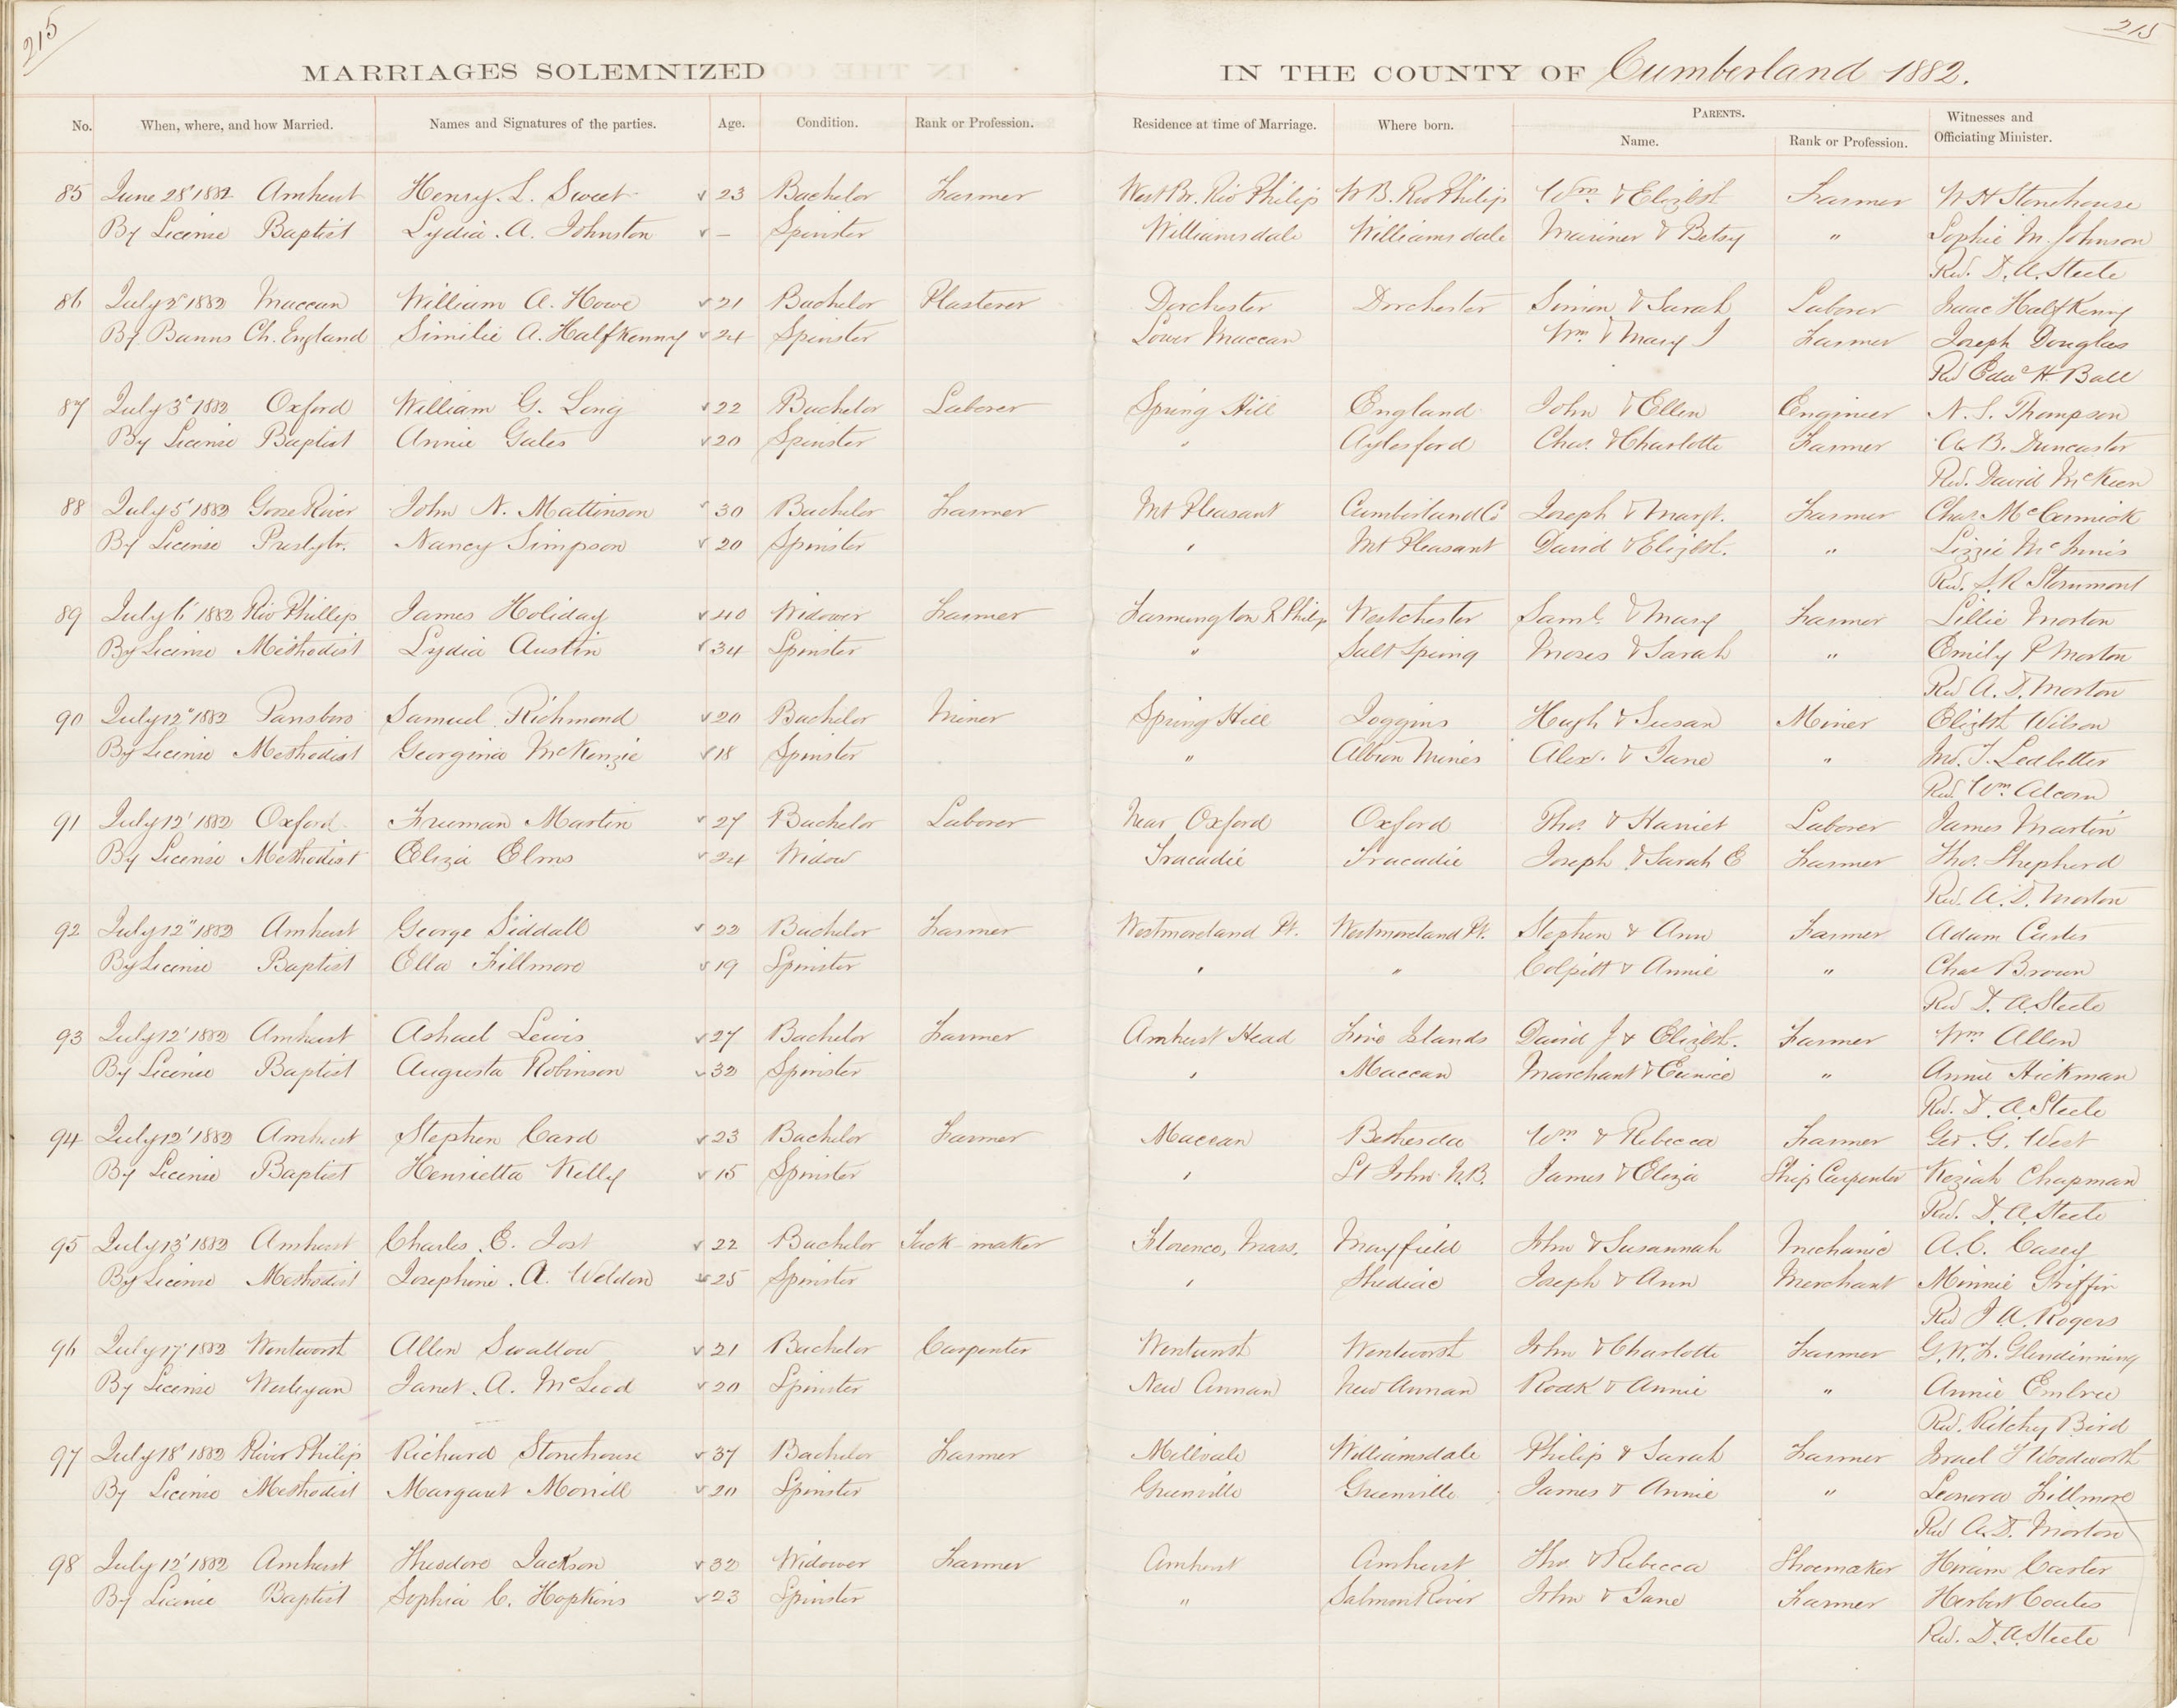 215
215
MARRIAGES SOLEMNIZED IN THE COUNTY OF Cumberland 1882.
No. When, where, and how Married. Names and Signatures of the parties. Age. Condition. Rank or Profession. Residence at time of Marriage. Where born. PARENTS. Name. Rank or Profession. Witnesses and Officiating Minister.
85 June 28' 1882 Amherst Henry. L. Sweet v 23 Bachelor Farmer West Br. Riv Philip W B. Riv Philip Wm. & Elizbth Farmer W H Stonehouse
By License Baptist Lydia. A. Johnston v – Spinster Williamsdale Williamsdale Mariner & Betsy " Sophie M. Johnson
Rev. D. A. Steele
86 July 2' 1882 Maccan William A. Howe v 21 Bachelor Plasterer Dorchester Dorchester Simon & Sarah Laborer Isaac Halfkenny
By Banns Ch. England Similie A. Halfkenny v 24 Spinster Lower Maccan Wm. & Mary J Farmer Joseph Douglas
Rev Edwd H. Ball
87 July 3' 1882 Oxford William G. Long v 22 Bachelor Laborer Spring Hill England John & Ellen Engineer N. S. Thompson
By License Baptist Annie Gates v 20 Spinster " Aylesford Chas. & Charlotte Farmer A. B. Duncaster
Rev. David McKeen
88 July 5' 1882 Goose River John N. Mattinson v 30 Bachelor Farmer Mt Pleasant Cumberland Co Joseph & Margt. Farmer Chas. McCormick
By License Presbytr. Nancy Simpson v 20 Spinster " Mt Pleasant David & Elizbt. " Lizzie McInnis
Rev.
89 July 6' 1882 Riv Phillip James Holiday v 40 Widower Farmer Farmington R Philip Westchester Saml. & Mary Farmer Lillie Morton
By License Methodist Lydia Austin v 34 Spinster " Salt Spring Moses & Sarah " Emily P Morton
Rev A. D. Morton
90 July 12" 1882 Parrsboro Samuel Richmond v 20 Bachelor Miner Spring Hill Joggins Hugh & Susan Miner Elizbth Wilson
By License Methodist Georgina McKenzie v 18 Spinster " Albion Mines Alex. & Jane " Ledbetter
Rev. Wm. Alcorn
91 July 12' 1882 Oxford Freeman Martin v 27 Bachelor Laborer Near Oxford Oxford Thos. & Harriet Laborer James Martin
By License Methodist Eliza Elms v 24 Widow Tracadie Tracadie Joseph & Sarah E Farmer Thos. Shepherd
Rev. A. D. Morton
92 July 12" 1882 Amherst George Siddall v 22 Bachelor Farmer Westmoreland Pt. Westmoreland Pt. Stephen & Ann Farmer Adam
By License Baptist Ella Fillmore v 19 Spinster " " Colpitt & Annie " Chas Brown
Rev D. A. Steele
93 July 12' 1882 Amherst Ashael Lewis v 27 Bachelor Farmer Amherst Head Five Islands David J & Elizbth. Farmer Wm Allen
By License Baptist Augusta Robinson v 32 Spinster " Maccan Marchant & Eunice " Annie Hickman
Rev. D. A. Steele
94 July 12' 1882 Amherst Stephen Card v 23 Bachelor Farmer Maccan Bethesda Wm & Rebecca Farmer Geo. G. West
By License Baptist Henrietta Kelly v 15 Spinster " St John N.B. James & Eliza Ship Carpenter Keziah Chapman
Rev. D. A. Steele
95 July 13' 1882 Amherst Charles. E. Jost v 22 Bachelor Tack-maker Florence, Mass. Mayfield John & Susannah Mechanic A. C. Casey
By License Methodist Josephine. A. Weldon v 25 Spinster " Shediac Joseph & Ann Merchant Minnie Griffin
Rev J A. Rogers
96 July 17' 1882 Wentworth Allen Swallow v 21 Bachelor Carpenter Wentworth Wentworth John & Charlotte Farmer G. W. F. Glendinning
By License Wesleyan Janet. A. McLeod v 20 Spinster New Annan New Annan Rodk & Annie " Annie Embree
Rev. Ritchy Bird
97 July 18' 1882 River Philip Richard Stonehouse v 37 Bachelor Farmer Millvale Williamsdale Philip & Sarah Farmer Israel T Woodworth
By License Methodist Margaret Morrill v 20 Spinster Greenville Greenville James & Annie " Leonora Fillmore
Rev A. D. Morton
98 July 12' 1882 Amherst Theodore Jackson v 32 Widower Farmer Amherst Amherst Thos & Rebecca Shoemaker Hiram Carter
By License Baptist Sophia C. Hopkins v 23 Spinster " Salmon River John & Jane Farmer Herbert Coates
Rev. D. A. Steele